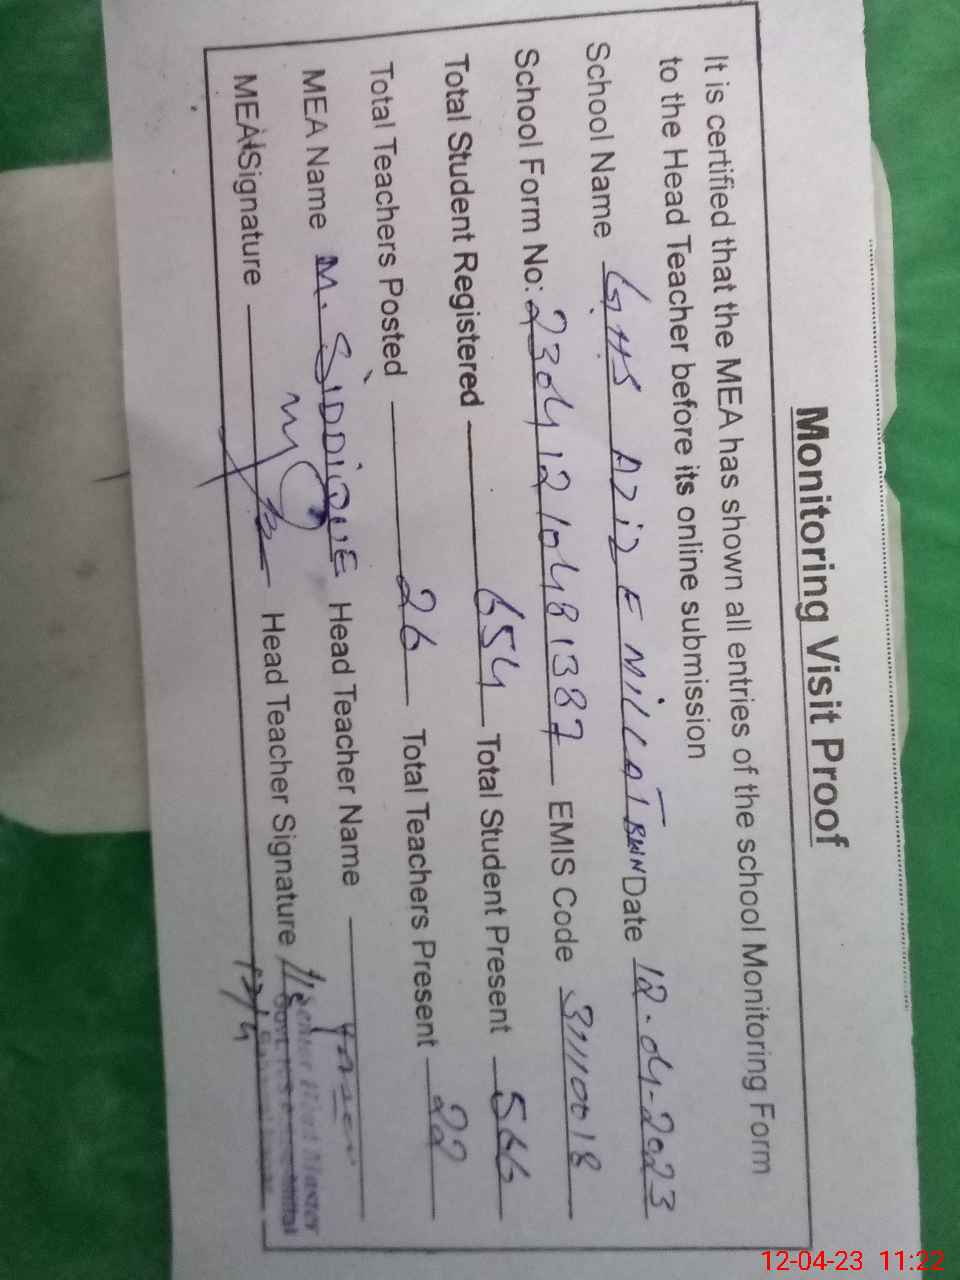 Monitoring Visit Proof
It is certified that the MEA has shown all entries of the school Monitoring Form
to the Head Teacher before its online submission
School Name GHS AZIZ E MILLAT BWN Date 12-04-2023
School Form No: 23041210481387 EMIS Code 31110018
Total Student Registered 654 Total Student Present 566
Total Teachers Posted 26 Total Teachers Present 22
MEA Name M. SIDDIQUE Head Teacher Name
MEA Signature Head Teacher Signature
12/4
Senior Head Master
Govt.
12-04-23 11:22